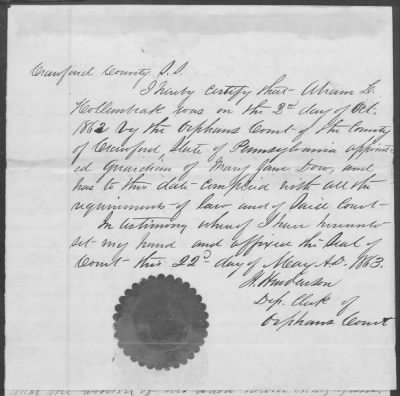 Crawford County S.S.
I hereby certify that Abram L.
Hollenbeak was on the 2nd day of Oct.
1862 by the Orphans Court of the County
of Crawford State of Pennsylvania appoint-
ed Guardian of Mary Jane Dow, and
has to this date complied with all the
requirements of law and of Said Court
In testimony whereof I have hereunto
set my hand and affixed the Seal of
Court this 22d day of May A.D. 1863.
Henderson
Dep. Clerk of
Orphans Court